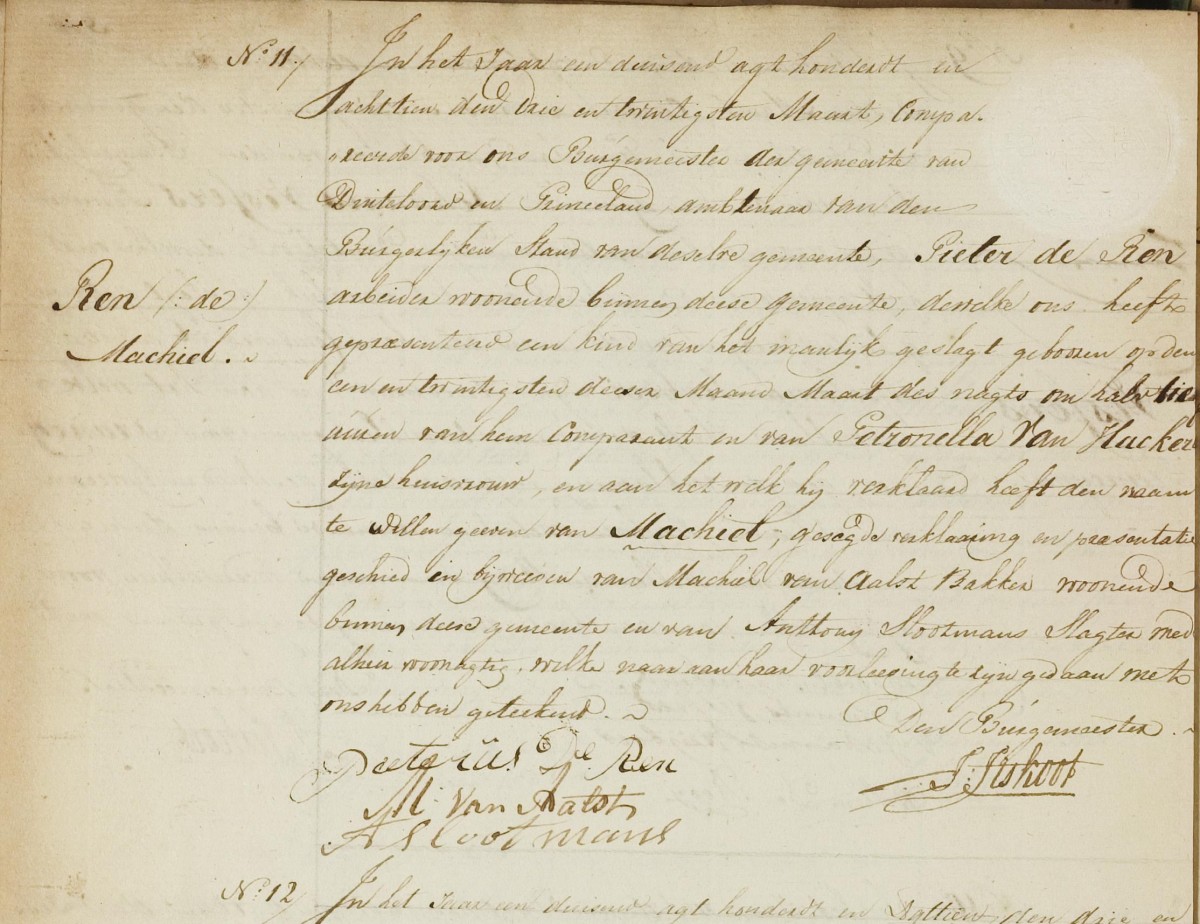 No. 11 / In het Jaar een duisend agt honderdt en
achttien den drie en twintigsten Maart, Compa-
„reerde voor ons Burgemeester der gemeente van
Dinteloord en Princeland, ambtenaar van den
Burgerlijken Stand van deselve gemeente, Pieter de Ren
Ren (: de :)
Machiel.
arbeider woonende binnen deese gemeente, dewelke ons heeft
gepræsenteerd een kind van het manlijk geslagt gebooren op den
een en twintigsten deeser Maand Maart des nagts om halv tie
uuren van hem Comparant en van Petronella Van Hacker
zijne huisvrouw, en aan het welk hij verklaard heeft den naam
te willen geeven van Machiel, gesegde verklaaring en præsentatie
geschied in bijweesen van Machiel van Aalst Bakker woonende
binnen deese gemeente en van Anthonij Slootmans Slagter med
alhier woonagtig, welke naar aan haar voorleesing te zijn gedaan met
ons hebben geteekend.
Den Burgemeester
Peeterus De Ren
M. Van Aalst
A Slootmans
No. 12 / In het Jaar een duisend agt honderdt en Agttien, den drie en